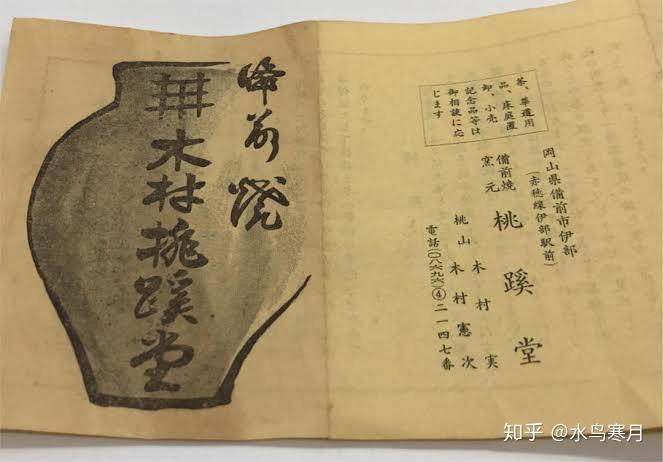 岡山県備前市伊部
(赤穂線伊部駅前)
備前焼
窯元
桃蹊堂
木村実
桃山 木村憲次
電話(〇八六九六)④二一四七番
茶、華道用
品、床庭置
卸、小売
記念品等は
御相談に応
じます
備前焼
木村桃蹊堂
知乎 @水鸟寒月